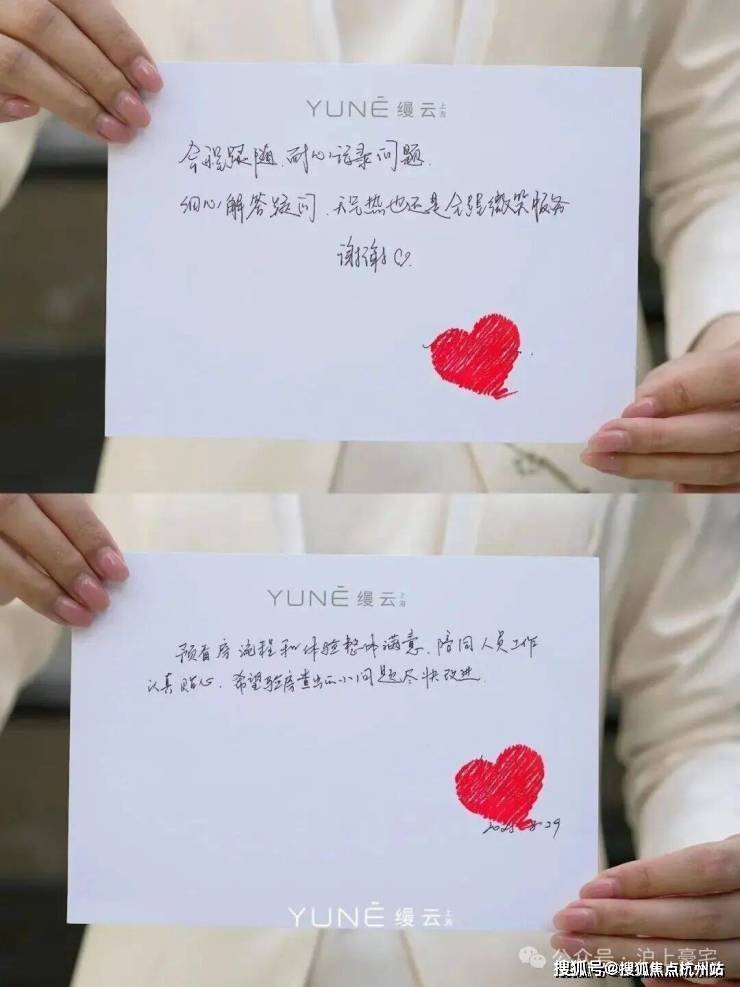 YUNĒ 缦云 上海
全程跟随、耐心记录问题.
细心解答疑问、天气热也还是全程微笑服务
谢谢♡.
YUNĒ 缦云 上海
预看房流程和体验整体满意、陪同人员工作
认真贴心.希望验房查出的小问题尽快改进.
YUNĒ 缦云 上海
公众号·沪上豪宅
搜狐号@搜狐焦点杭州站